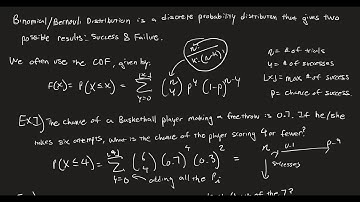 Binomial/Bernouli Distribution is a discrete probability distribution that gives two
possible results: Success & Failure.
We often use the CDF, given by:
n!
k!(n-k)!
F(x) = P(X≤x) = Σ (n y) p^y (1-p)^n-y
⌊x⌋
y=0
n = # of trials
y = # of successes
⌊x⌋ = max # of success
p = chance of success.
EX1 The chance of a Basketball player making a free throw is 0.7. If he/she
makes six attempts, what is the chance of the player scoring 4 or fewer?
P(X≤4) = Σ (6 4) (0.7)^4 (0.3)^2 =
⌊4⌋
y=0
adding all the Pi
n
0.7
successes
of the 7?